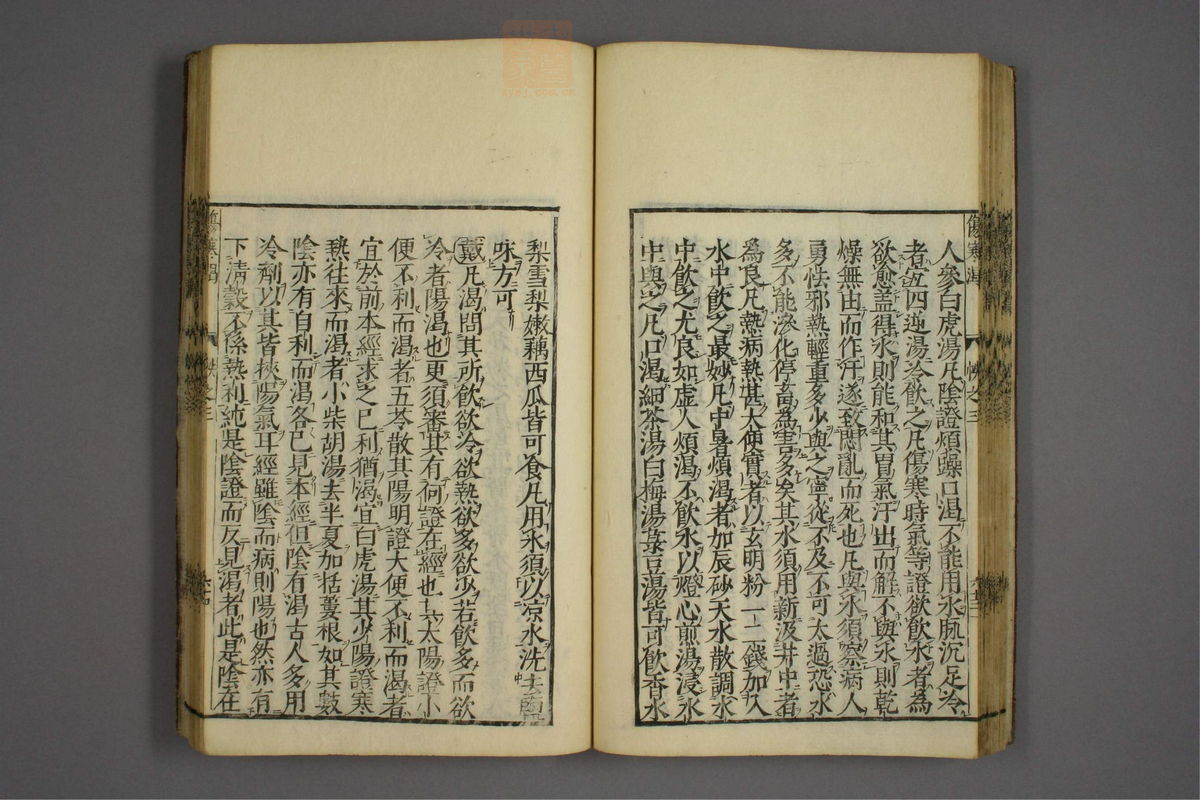 傷寒渴
人參白虎湯凡陰證煩躁口渴不能用水脉沉足冷
者宜四逆湯冷飲之凡傷寒時氣等證欲飲水者為
欲愈盖得水則能和其胃氣汗出而解不與水則乾
燥無由而作汗遂致悶亂而死也凡與水須察病人
勇怯邪熱輕重多少與之寧從不及不可太過恐水
多不能滲化停畜為害多矣其水須用新汲井中者
為良凡熱病熱甚大便實者以玄明粉一二錢加入
水中飲之最妙凡中暑煩渴者加辰砂天水散調水
中飲之尤良如虛人煩渴不飲水以燈心煎湯浸水
中與之凡口渴細茶湯白梅湯菉豆湯皆可飲香水
梨雪梨嫩藕西瓜皆可食凡用氷須以凉水洗去鹽
味方可
戴凡渴問其所飲欲冷欲熱欲多欲少若飲多而欲
冷者陽渴也更須審其有何證在何經也其太陽證小
便不利而渴者五苓散其陽明證大便不利而渴者
宜於前本經求之已利猶渴宜白虎湯其少陽證寒
熱往來而渴者小柴胡湯去半夏加括蔞根如其數
陰亦有自利而渴各已見本經但陰有渴古人多用
冷劑以其皆挾陽氣耳經雖陰而病則陽也然亦有
下清穀不係熱利純是陰證而反見渴者此是陰在